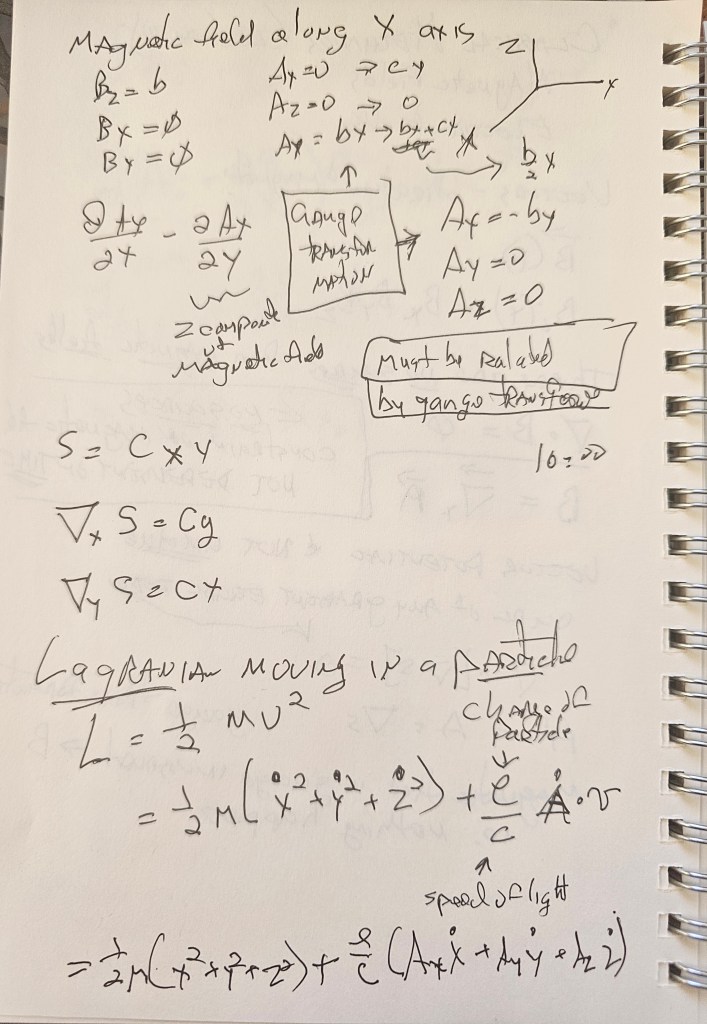 Magnetic field along X axis
Bz = b
Bx = ∅
By = ∅
Ax = 0 → cy
Az = 0 → 0
Ay = bx → bx + cx
b/2 x
z
x
∂Ay/∂x - ∂Ax/∂y
z compont
of
magnetic field
Gauge
TRANSFOR
MATION
Ax = -by
Ay = 0
Az = 0
Must be Ralated
by gauge TRANSFORM
S = C x y
10:00
∇x S = Cy
∇y S = Cx
LagRANIAN MOVING IN a PARTICLE
L = 1/2 MV²
charge of
Particle
= 1/2 M(ẋ² + ẏ² + ż²) + e/c A·v
speed of light
= 1/2 M(x² + y² + z²) + e/c (Ax ẋ + Ay ẏ + Az ż)